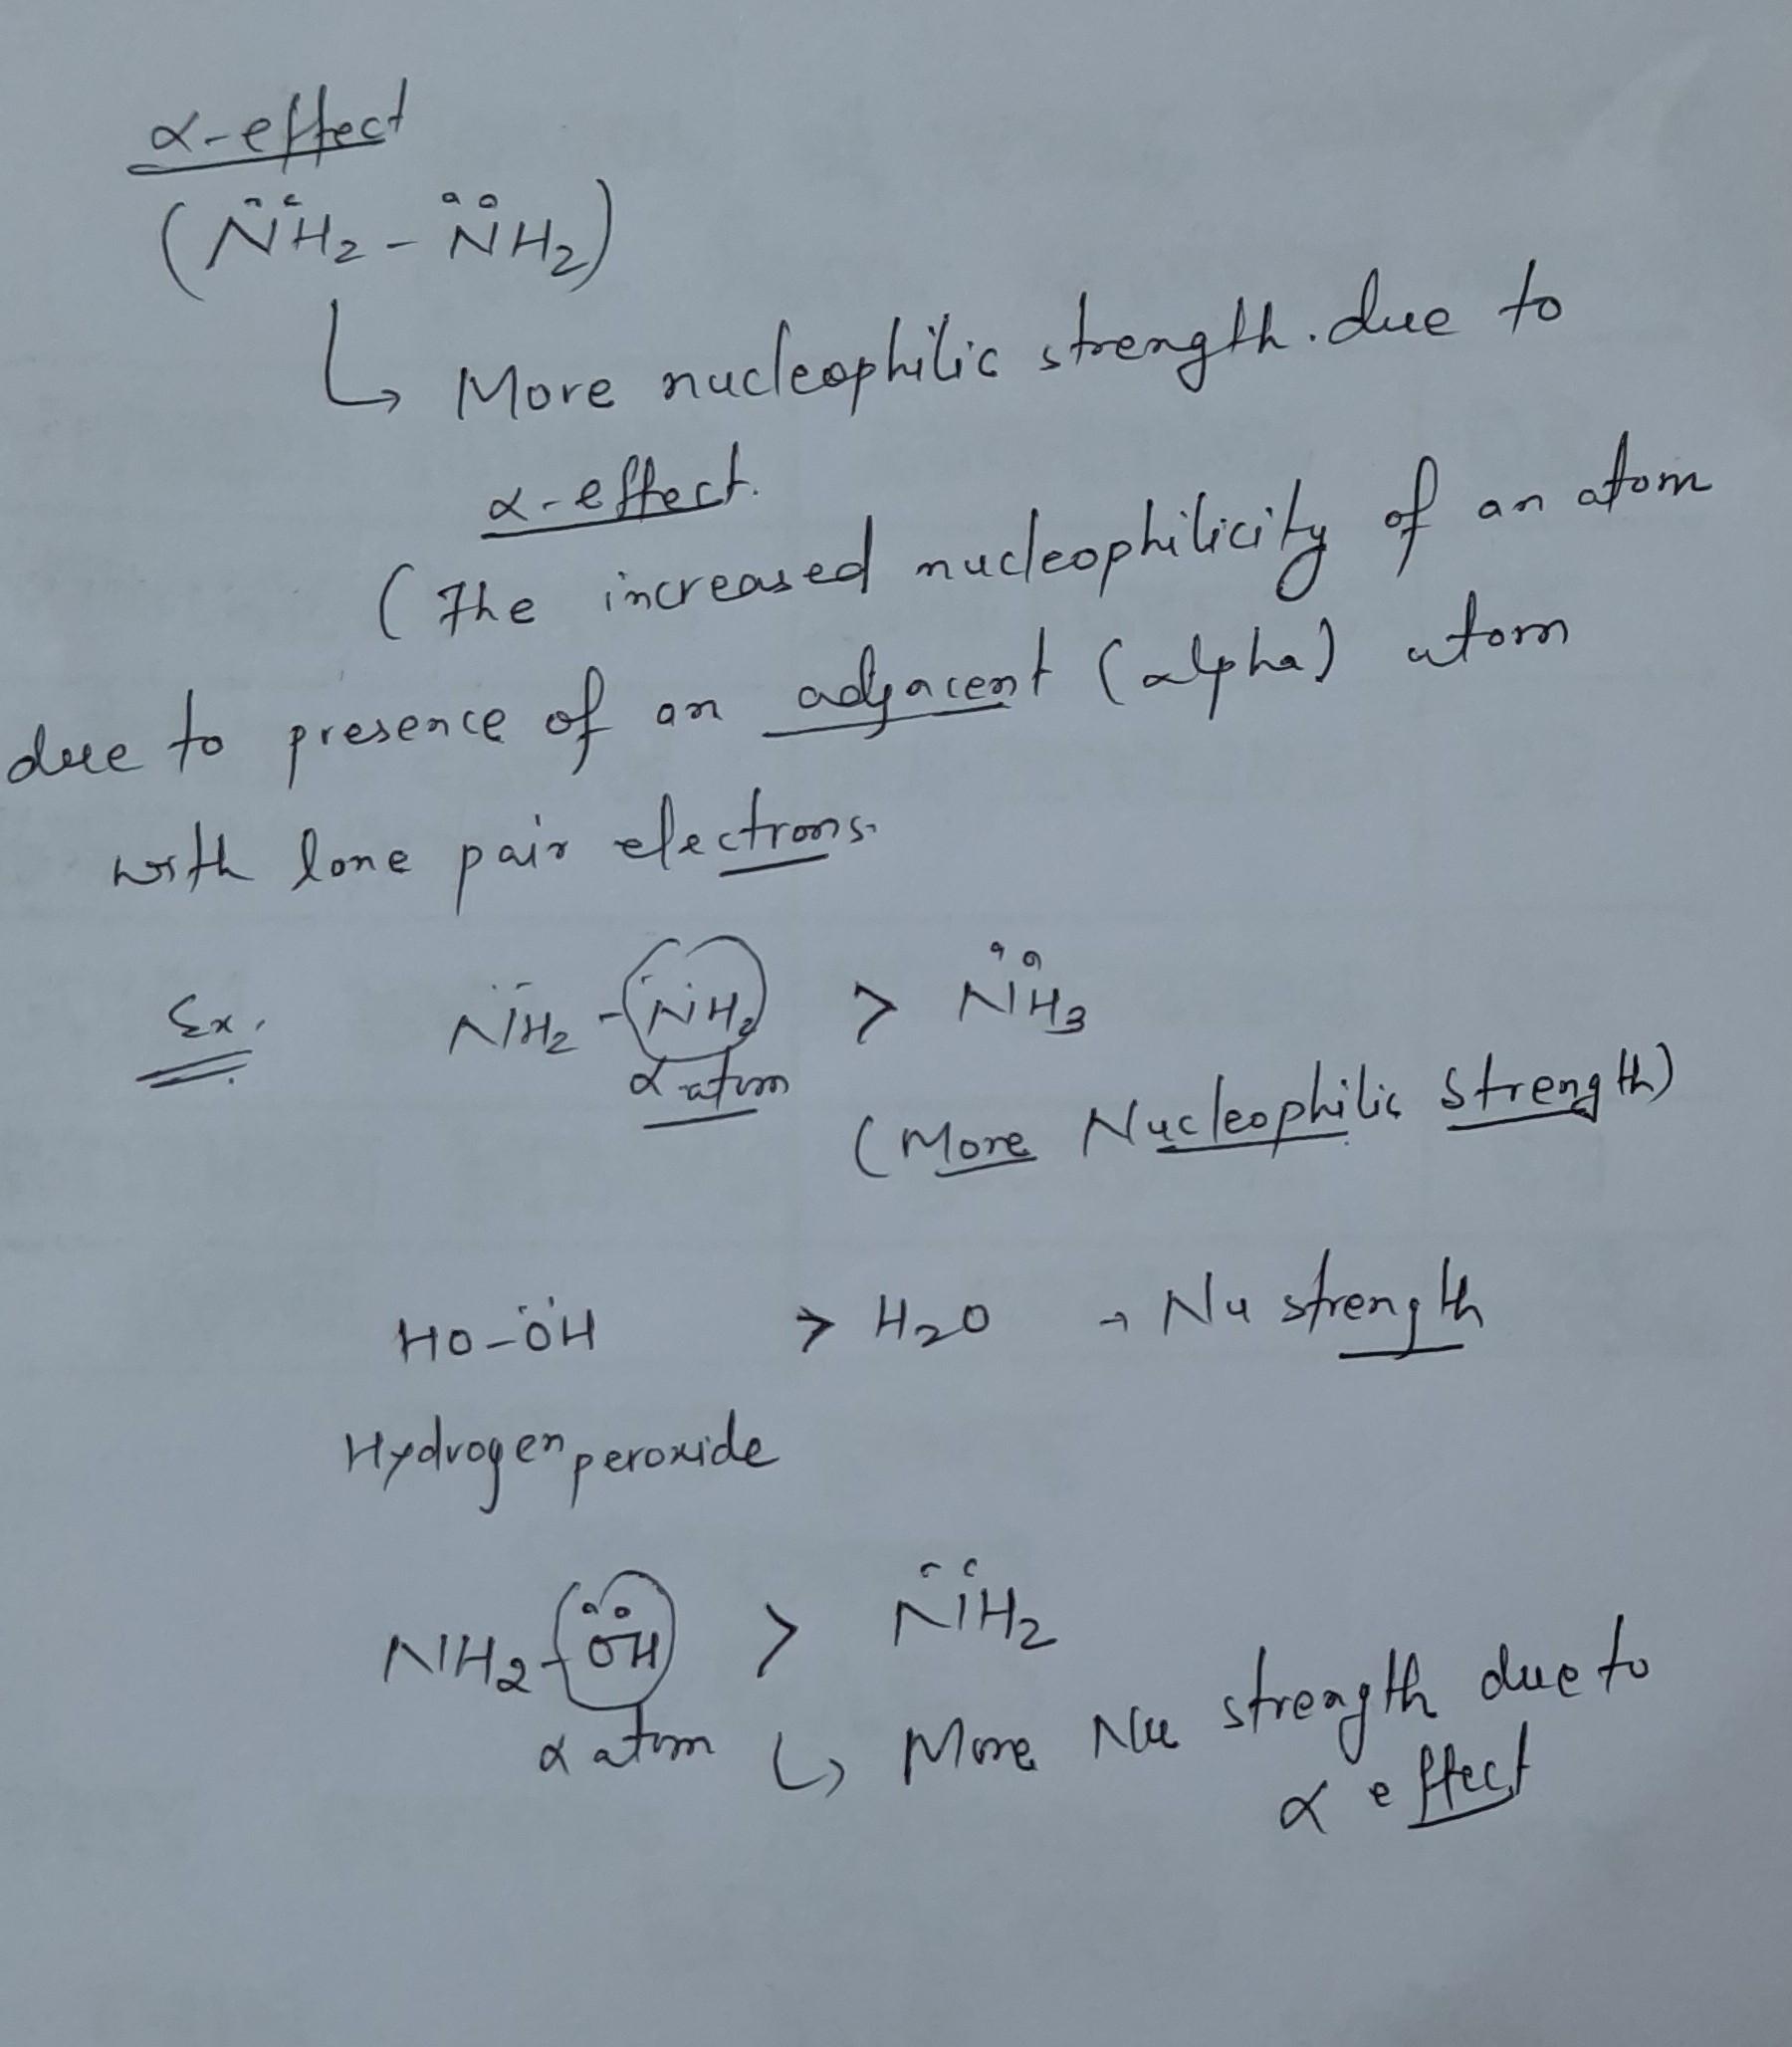 α-effect
(N̈H₂ - N̈H₂)
↳ More nucleophilic strength. due to
α-effect.
(The increased nucleophilicity of an atom
due to presence of an adjacent (alpha) atom
with lone pair electrons.
Ex. N̈H₂ - N̈H₂ > N̈H₃
α atom
(More Nucleophilic strength)
HO-ÖH > H₂O → Nu strength
Hydrogen peroxide
NH₂-ÖH > N̈H₂
α atom ↳ More Nu strength due to
α effect